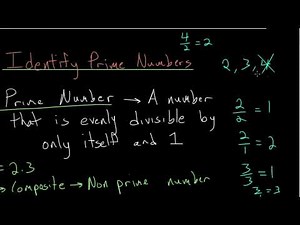 4/2 = 2
Identify Prime Numbers
2, 3, 4
Prime Number → A number
that is evenly divisible by
only itself and 1
2/2 = 1
2/1 = 2
3/3 = 1
= 2.3
→ Composite → Non prime number
= 3